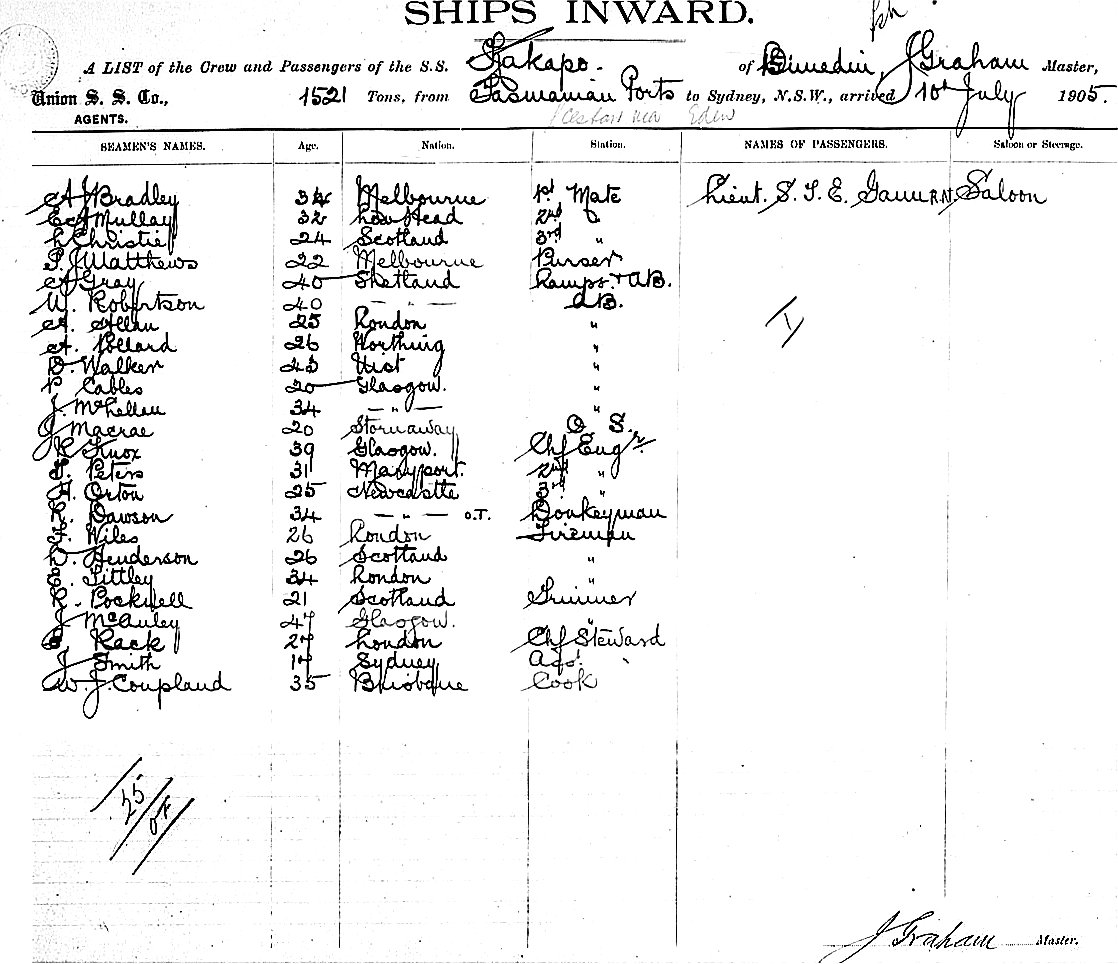 SHIPS INWARD.
A LIST of the Crew and Passengers of the S.S. Kakapo. of Dunedin, J Graham Master,
Union S. S. Co., 1521 Tons, from Tasmanian Ports to Sydney, N.S.W., arrived 10th July 1905.
AGENTS. Eden
SEAMEN'S NAMES. Age. Nation. Station. NAMES OF PASSENGERS. Saloon or Steerage.
A J Bradley 34 Melbourne 1st Mate Lieut. S. T. E. R.N. Saloon
E A Mullay 32 Low Head 2nd "
L Christie 24 Scotland 3rd "
P. J Matthews 22 Melbourne Purser
A Gray 40 Shetland Lamps. + AB.
W. Robertson 40 — " — AB.
A. Allan 25 London "
A. Pollard 26 Worthing "
D. Walker 43 Uist "
P Cables 20 Glasgow. "
J. McLellan 34 — " — "
J Macrae 20 Stornaway O. S.
R Knox 39 Glasgow. Chf Engr
T. Peters 31 Maryport. 2nd "
H. Orton 25 Newcastle 3rd "
R. Dawson 34 — " — O.T. Donkeyman
F. Wiles 26 London Fireman
D. Henderson 26 Scotland "
E. Tittley 34 London "
R. Pocknell 21 Scotland Trimmer
J McAuley 47 Glasgow. "
Rack 27 London Chf Steward
J Smith 17 Sydney Asst. "
W. J. Coupland 35 Brisbane Cook
25
J Graham Master.